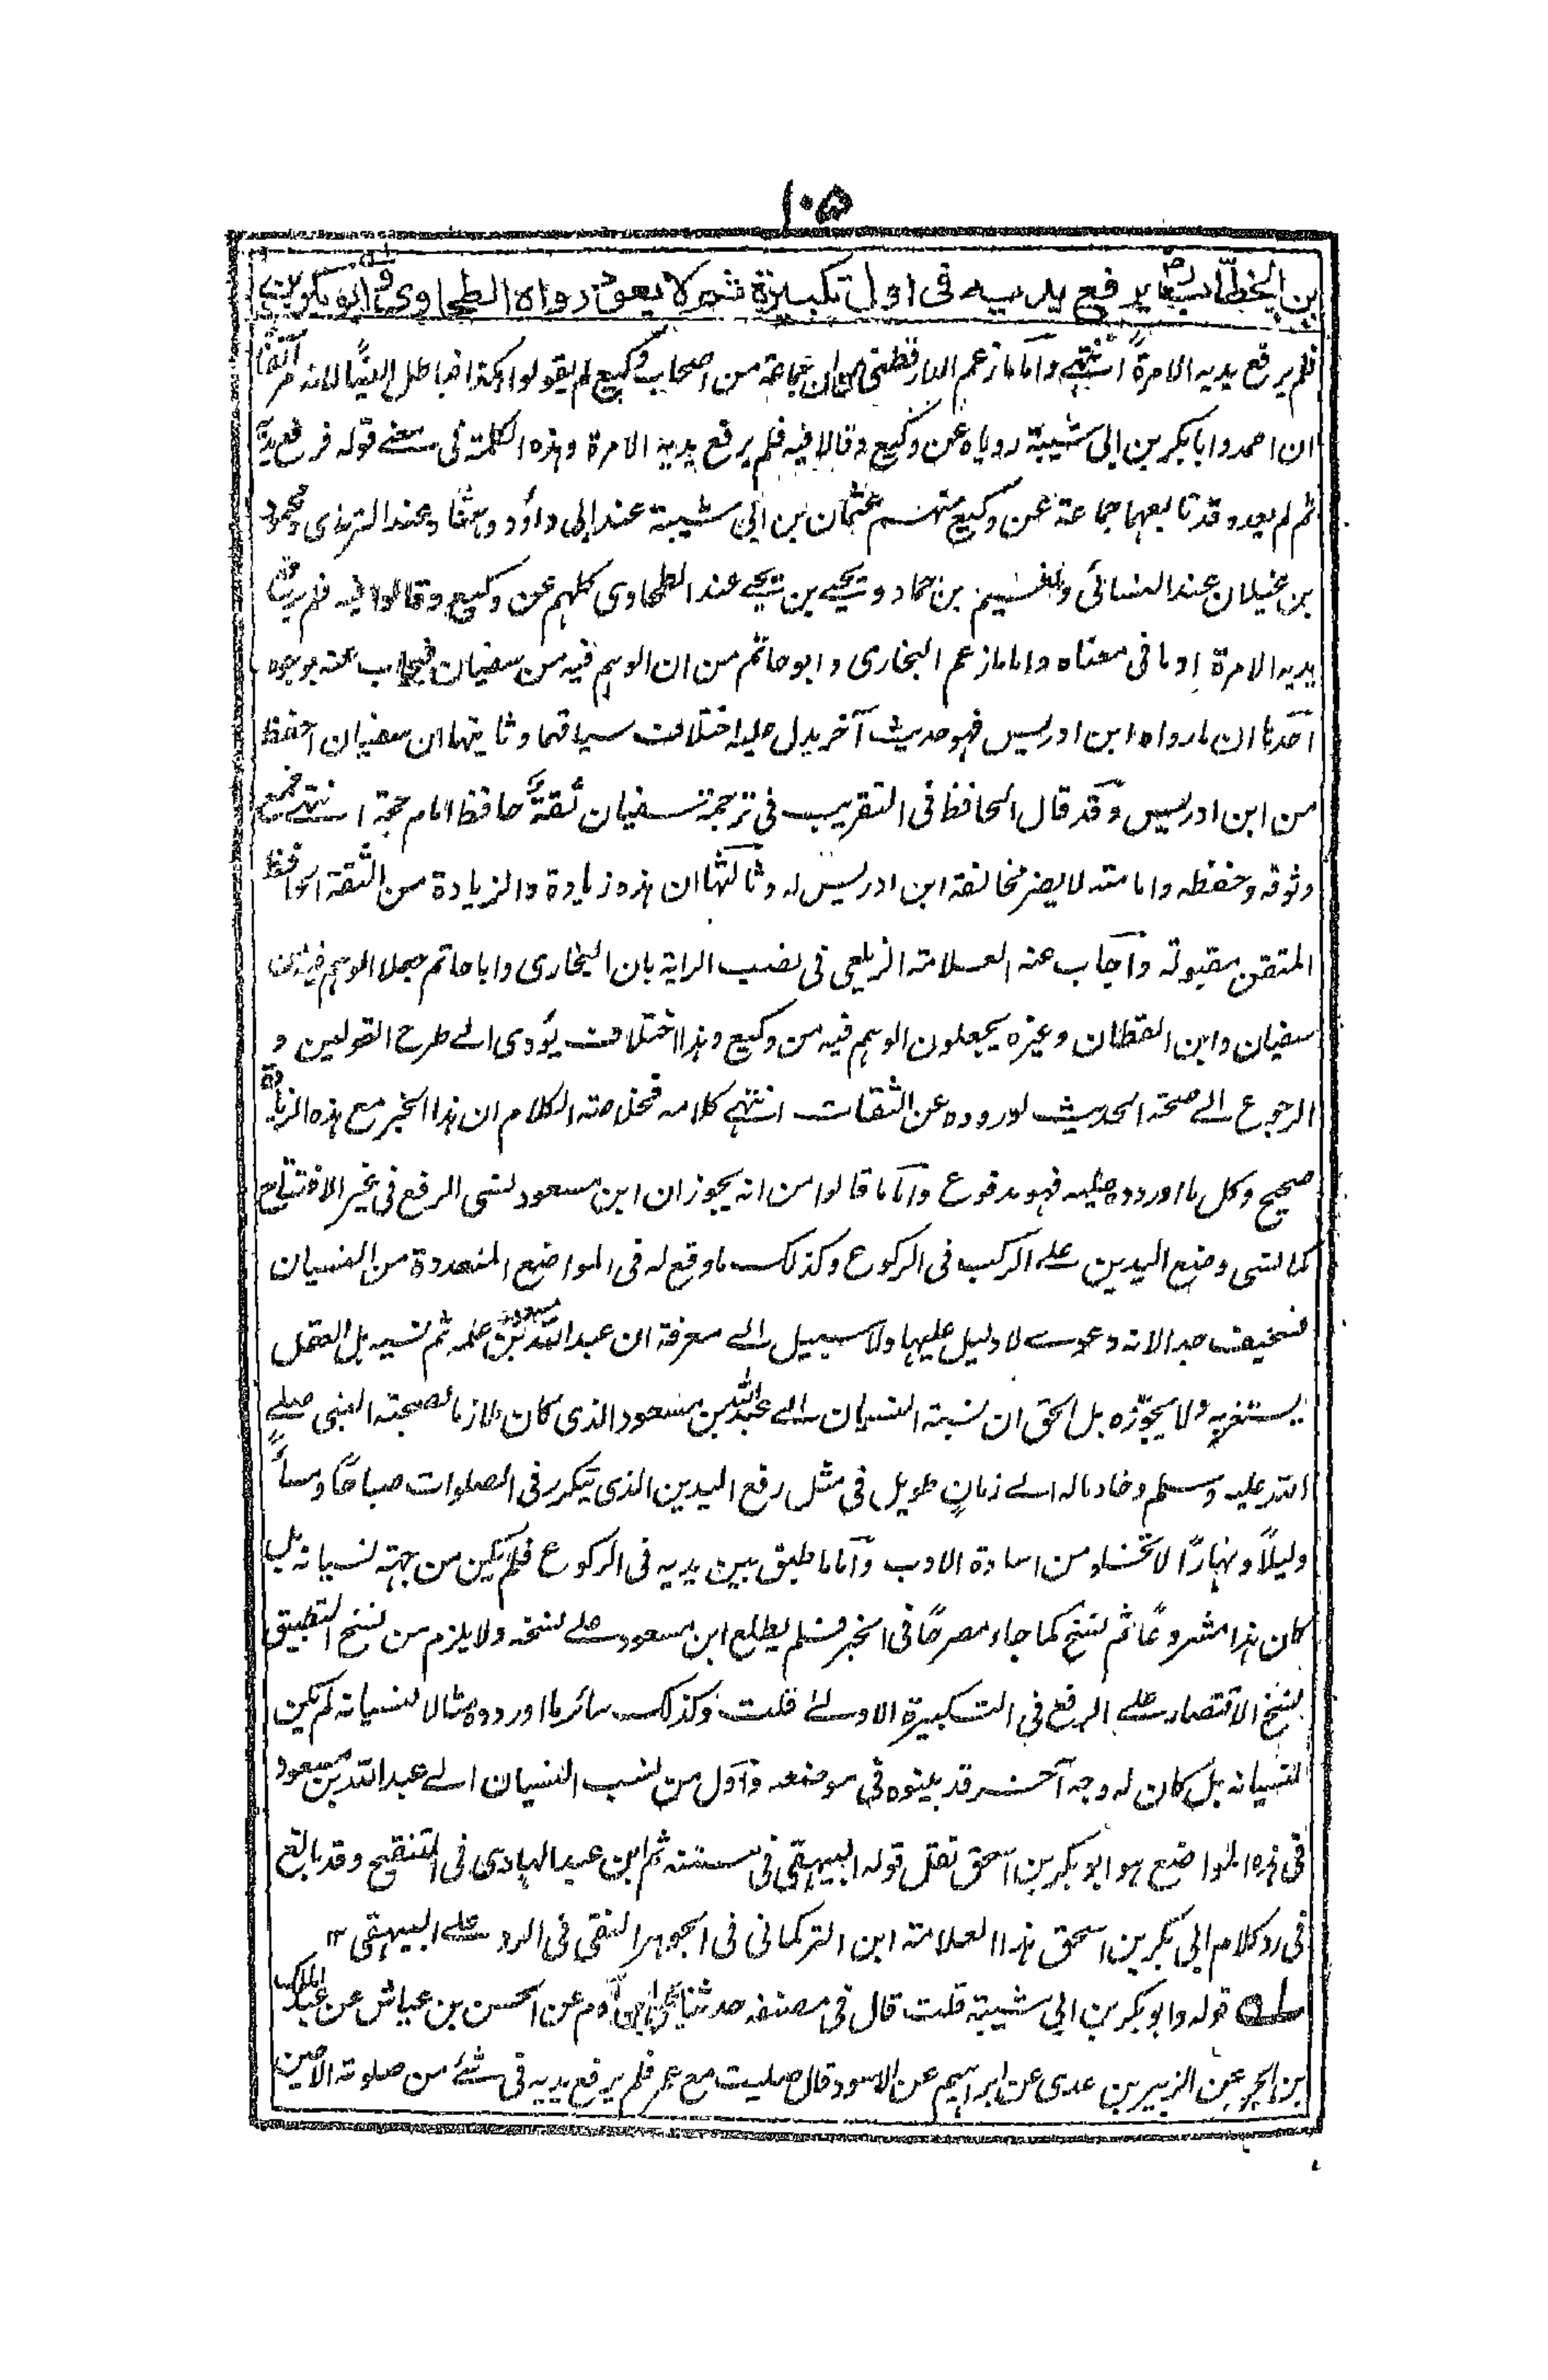 ١٠٥
بن الخطاب رض يرفع يديه فى اول تكبيرة ثم لا يعود رواه الطحاوى و ابو بكر بن ابى
فلم يرفع يديه الا مرةً انتهى واما ما زعم الدارقطنى من ان جماعة من اصحاب وكيع لم يقولوا هكذا فباطل ايضًا لانه مر آنفًا
ان احمد وابا بكر بن ابى شيبة روياه عن وكيع وقالا فيه فلم يرفع يديه الا مرة وهذه الكلمة فى معنے قوله فرفع يديه
ثم لم يعد وقد تابعهما جماعة عن وكيع منهم عثمان بن ابى شيبة عند ابى داؤد وهنّاد عند الترمذى ومحمود
بن غيلان عند النسائى ونعيم بن حماد ويحيے بن يحيے عند الطحاوى كلهم عن وكيع وقالوا فيه فلم يرفع
يديه الا مرة او ما فى معناه واما ما زعم البخارى وابو حاتم من ان الوهم فيه من سفيان فيجاب عنه بوجوه
احدها ان ما رواه ابن ادريس فهو حديث آخر يدل عليه اختلاف سياقهما وثانيها ان سفيان احفظ
من ابن ادريس وقد قال الحافظ فى التقريب فى ترجمة سفيان ثقةٌ حافظ امام حجة انتهے فمع
وثوقه وحفظه وامامته لا يضر مخالفة ابن ادريس له وثالثها ان هذه زيادة والزيادة من الثقة الحافظ
المتقن مقبولة واجاب عنه العلامة الزيلعى فى نصب الراية بان البخارى وابا حاتم جعلا الوهم فيه من
سفيان وابن القطان وغيره يجعلون الوهم فيه من وكيع وهذا اختلاف يؤدى الے طرح القولين و
الرجوع الے صحة الحديث لوروده عن الثقات انتهے كلامه فخلاصة الكلام ان هذا الخبر مع هذه الزيادة
صحيح وكل ما اوردوه عليه فهو مدفوع واما ما قالوا من انه يجوز ان ابن مسعود نسى الرفع فى غير الافتتاح
كما نسى وضع اليدين علے الركب فى الركوع وكذلك ما وقع له فى المواضع المتعددة من النسيان
فسخيف جدا لانه دعوے لا دليل عليها ولا سبيل الے معرفة ان عبد الله بن مسعود علمه ثم نسيه بل العقل
يستغربه ولا يجوّزه بل الحق ان نسبة النسيان الے عبد الله بن مسعود الذى كان ملازما لصحبة النبى صلے
الله عليه وسلم وخادما له الے زمانٍ طويل فى مثل رفع اليدين الذى يتكرر فى الصلوات صباحًا ومساءً
وليلاً ونهارًا لا تخلو من اساءة الادب واما ما طبق بين يديه فى الركوع فلم يكن من جهة نسيانه بل
كان هذا مشروعًا ثم نسخ كما جاء مصرحًا فى الخبر فلم يطلع ابن مسعود علے نسخه ولا يلزم من نسخ التطبيق
نسخ الاقتصار علے الرفع فى التكبيرة الاولے قلت وكذلك سائر ما اوردوه مثالا لنسيانه لم يكن
لنسيانه بل كان له وجه آخر قد بينوه فى موضعه واول من نسب النسيان الے عبد الله بن مسعود
فى هذه المواضع هو ابو بكر بن اسحق نقل قوله البيهقى فى سننه ثم ابن عبد الهادى فى التنقيح وقد بالغ
فى رد كلام ابى بكر بن اسحق هذا العلامة ابن التركمانى فى الجوهر النقى فى الرد علے البيهقى ١٢
ـلـه قوله وابو بكر بن ابى شيبة قلت قال فى مصنفه حدثنا يحيى بن آدم عن الحسن بن عياش عن عبد الملك
بن ابجر عن الزبير بن عدى عن ابراهيم عن الاسود قال صليت مع عمر فلم يرفع يديه فى شئ من صلوته الا حين